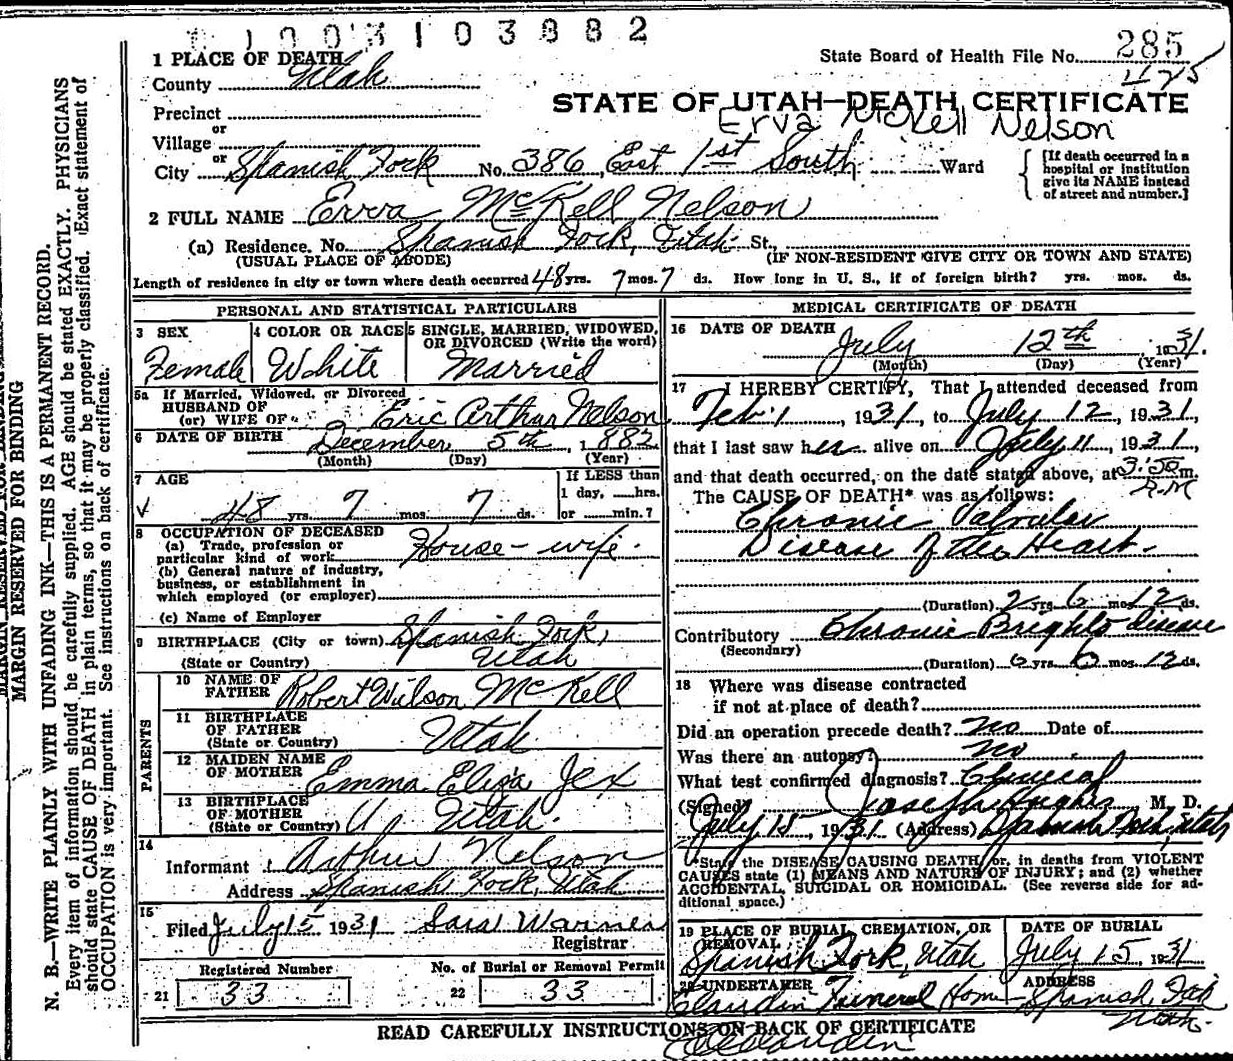 1003103882
1 PLACE OF DEATH
County Utah
State Board of Health File No. 285
425
Precinct
STATE OF UTAH—DEATH CERTIFICATE
Erva McKell Nelson
or
Village
or
City Spanish Fork No. 386, East 1st South Ward
[If death occurred in a hospital or institution give its NAME instead of street and number.]
2 FULL NAME Erva McKell Nelson
(a) Residence. No. Spanish Fork, Utah St.,
(USUAL PLACE OF ABODE) (IF NON-RESIDENT GIVE CITY OR TOWN AND STATE)
Length of residence in city or town where death occurred 48 yrs. 7 mos. 7 ds. How long in U. S., if of foreign birth? yrs. mos. ds.
PERSONAL AND STATISTICAL PARTICULARS
3 SEX
Female
4 COLOR OR RACE
White
5 SINGLE, MARRIED, WIDOWED,
OR DIVORCED (Write the word)
Married
5a If Married, Widowed, or Divorced
HUSBAND OF
(or) WIFE OF Eric Arthur Nelson
6 DATE OF BIRTH December 5th, 1882
(Month) (Day) (Year)
7 AGE
48 yrs. 7 mos. 7 ds.
If LESS than
1 day, hrs.
or min.?
8 OCCUPATION OF DECEASED
(a) Trade, profession or
particular kind of work House-wife.
(b) General nature of industry,
business, or establishment in
which employed (or employer)
(c) Name of Employer
9 BIRTHPLACE (City or town) Spanish Fork,
(State or Country) Utah
PARENTS
10 NAME OF
FATHER Robert Wilson McKell
11 BIRTHPLACE
OF FATHER
(State or Country) Utah
12 MAIDEN NAME
OF MOTHER Emma Eliza Jex
13 BIRTHPLACE
OF MOTHER
(State or Country) Utah.
14
Informant Arthur Nelson
Address Spanish Fork, Utah
15
Filed July 15 1931 Sara Warner
Registrar
Registered Number
21 33
No. of Burial or Removal Permit
22 33
MEDICAL CERTIFICATE OF DEATH
16 DATE OF DEATH
July 12th 1931.
(Month) (Day) (Year)
17 I HEREBY CERTIFY, That I attended deceased from
Feb 1, 1931, to July 12, 1931,
that I last saw her alive on July 11, 1931,
and that death occurred, on the date stated above, at 3:50 m.
A.M
The CAUSE OF DEATH* was as follows:
Chronic Valvular
Disease of the Heart.
(Duration) 2 yrs 6 mos 12 ds.
Contributory Chronic Brights Disease
(Secondary)
(Duration) 6 yrs 6 mos 12 ds.
18 Where was disease contracted
if not at place of death?
Did an operation precede death? No Date of
Was there an autopsy? No
What test confirmed diagnosis? Clinical
(Signed) Joseph Hughes M. D.
July 15, 1931 (Address) Spanish Fork, Utah
*State the DISEASE CAUSING DEATH, or, in deaths from VIOLENT
CAUSES state (1) MEANS AND NATURE OF INJURY; and (2) whether
ACCIDENTAL, SUICIDAL OR HOMICIDAL. (See reverse side for ad-
ditional space.)
19 PLACE OF BURIAL, CREMATION, OR
REMOVAL
Spanish Fork, Utah
DATE OF BURIAL
July 15, 1931
20 UNDERTAKER
Claudin Funeral Home
ADDRESS
Spanish Fork
Utah.
READ CAREFULLY INSTRUCTIONS ON BACK OF CERTIFICATE
MARGIN RESERVED FOR BINDING
N. B.—WRITE PLAINLY WITH UNFADING INK—THIS IS A PERMANENT RECORD.
Every item of information should be carefully supplied. AGE should be stated EXACTLY. PHYSICIANS
should state CAUSE OF DEATH in plain terms, so that it may be properly classified. Exact statement of
OCCUPATION is very important. See instructions on back of certificate.